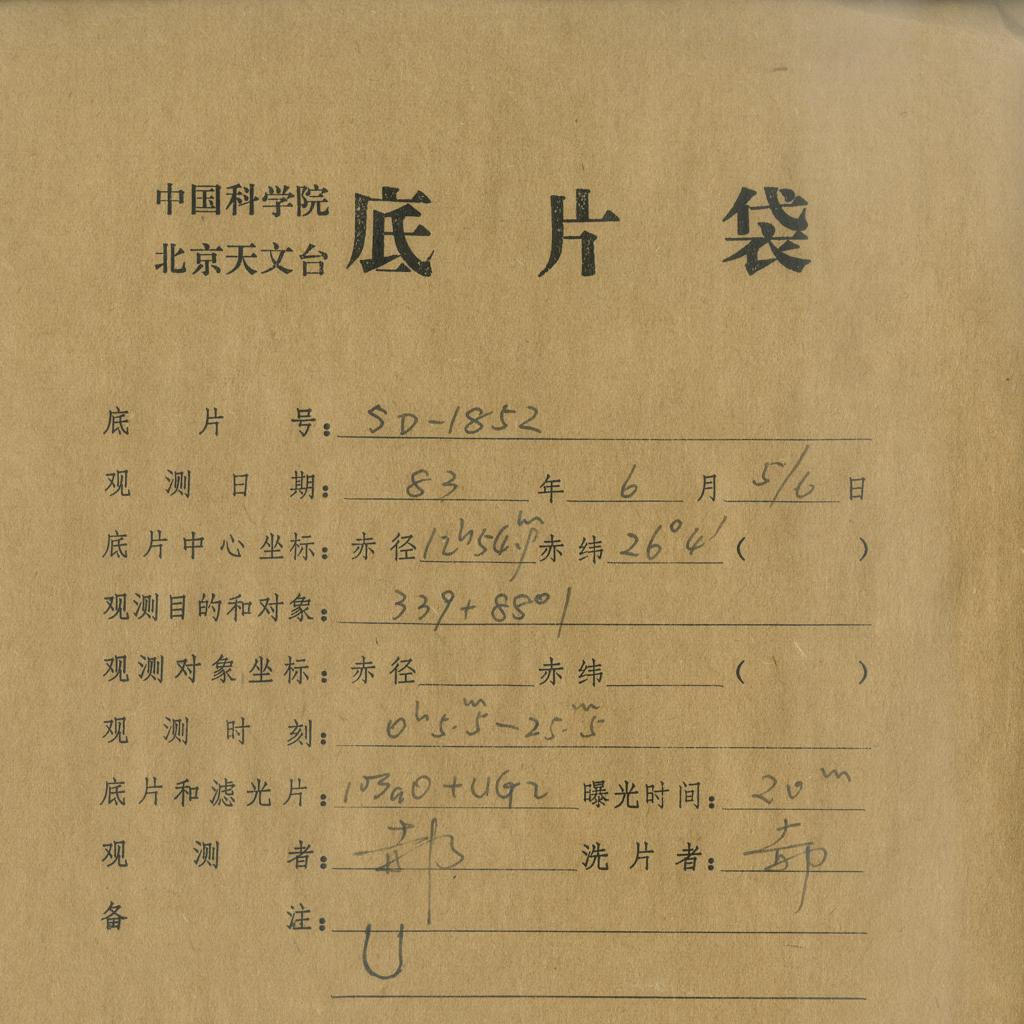 中国科学院
北京天文台
底片袋
底片号: SD-1852
观测日期: 83年6月5/6日
底片中心坐标: 赤径12ʰ54ᵐ.9赤纬26°4′( )
观测目的和对象: 339+88°1
观测对象坐标: 赤径 赤纬 ( )
观测时刻: 0ʰ5.ᵐ5-25.ᵐ5
底片和滤光片: 103aO+UG2 曝光时间: 20ᵐ
观测者: 郝 洗片者: 郝
备注:
U